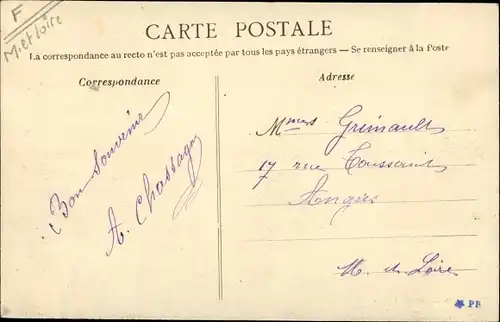 F
M. et Loire
CARTE POSTALE
La correspondance au recto n'est pas acceptée par tous les pays étrangers — Se renseigner à la Poste
Correspondance
Adresse
Bon Souvenir
A. Chassagny
Mmes Grimault
17 rue Toussaint
Angers
M. et Loire
PB